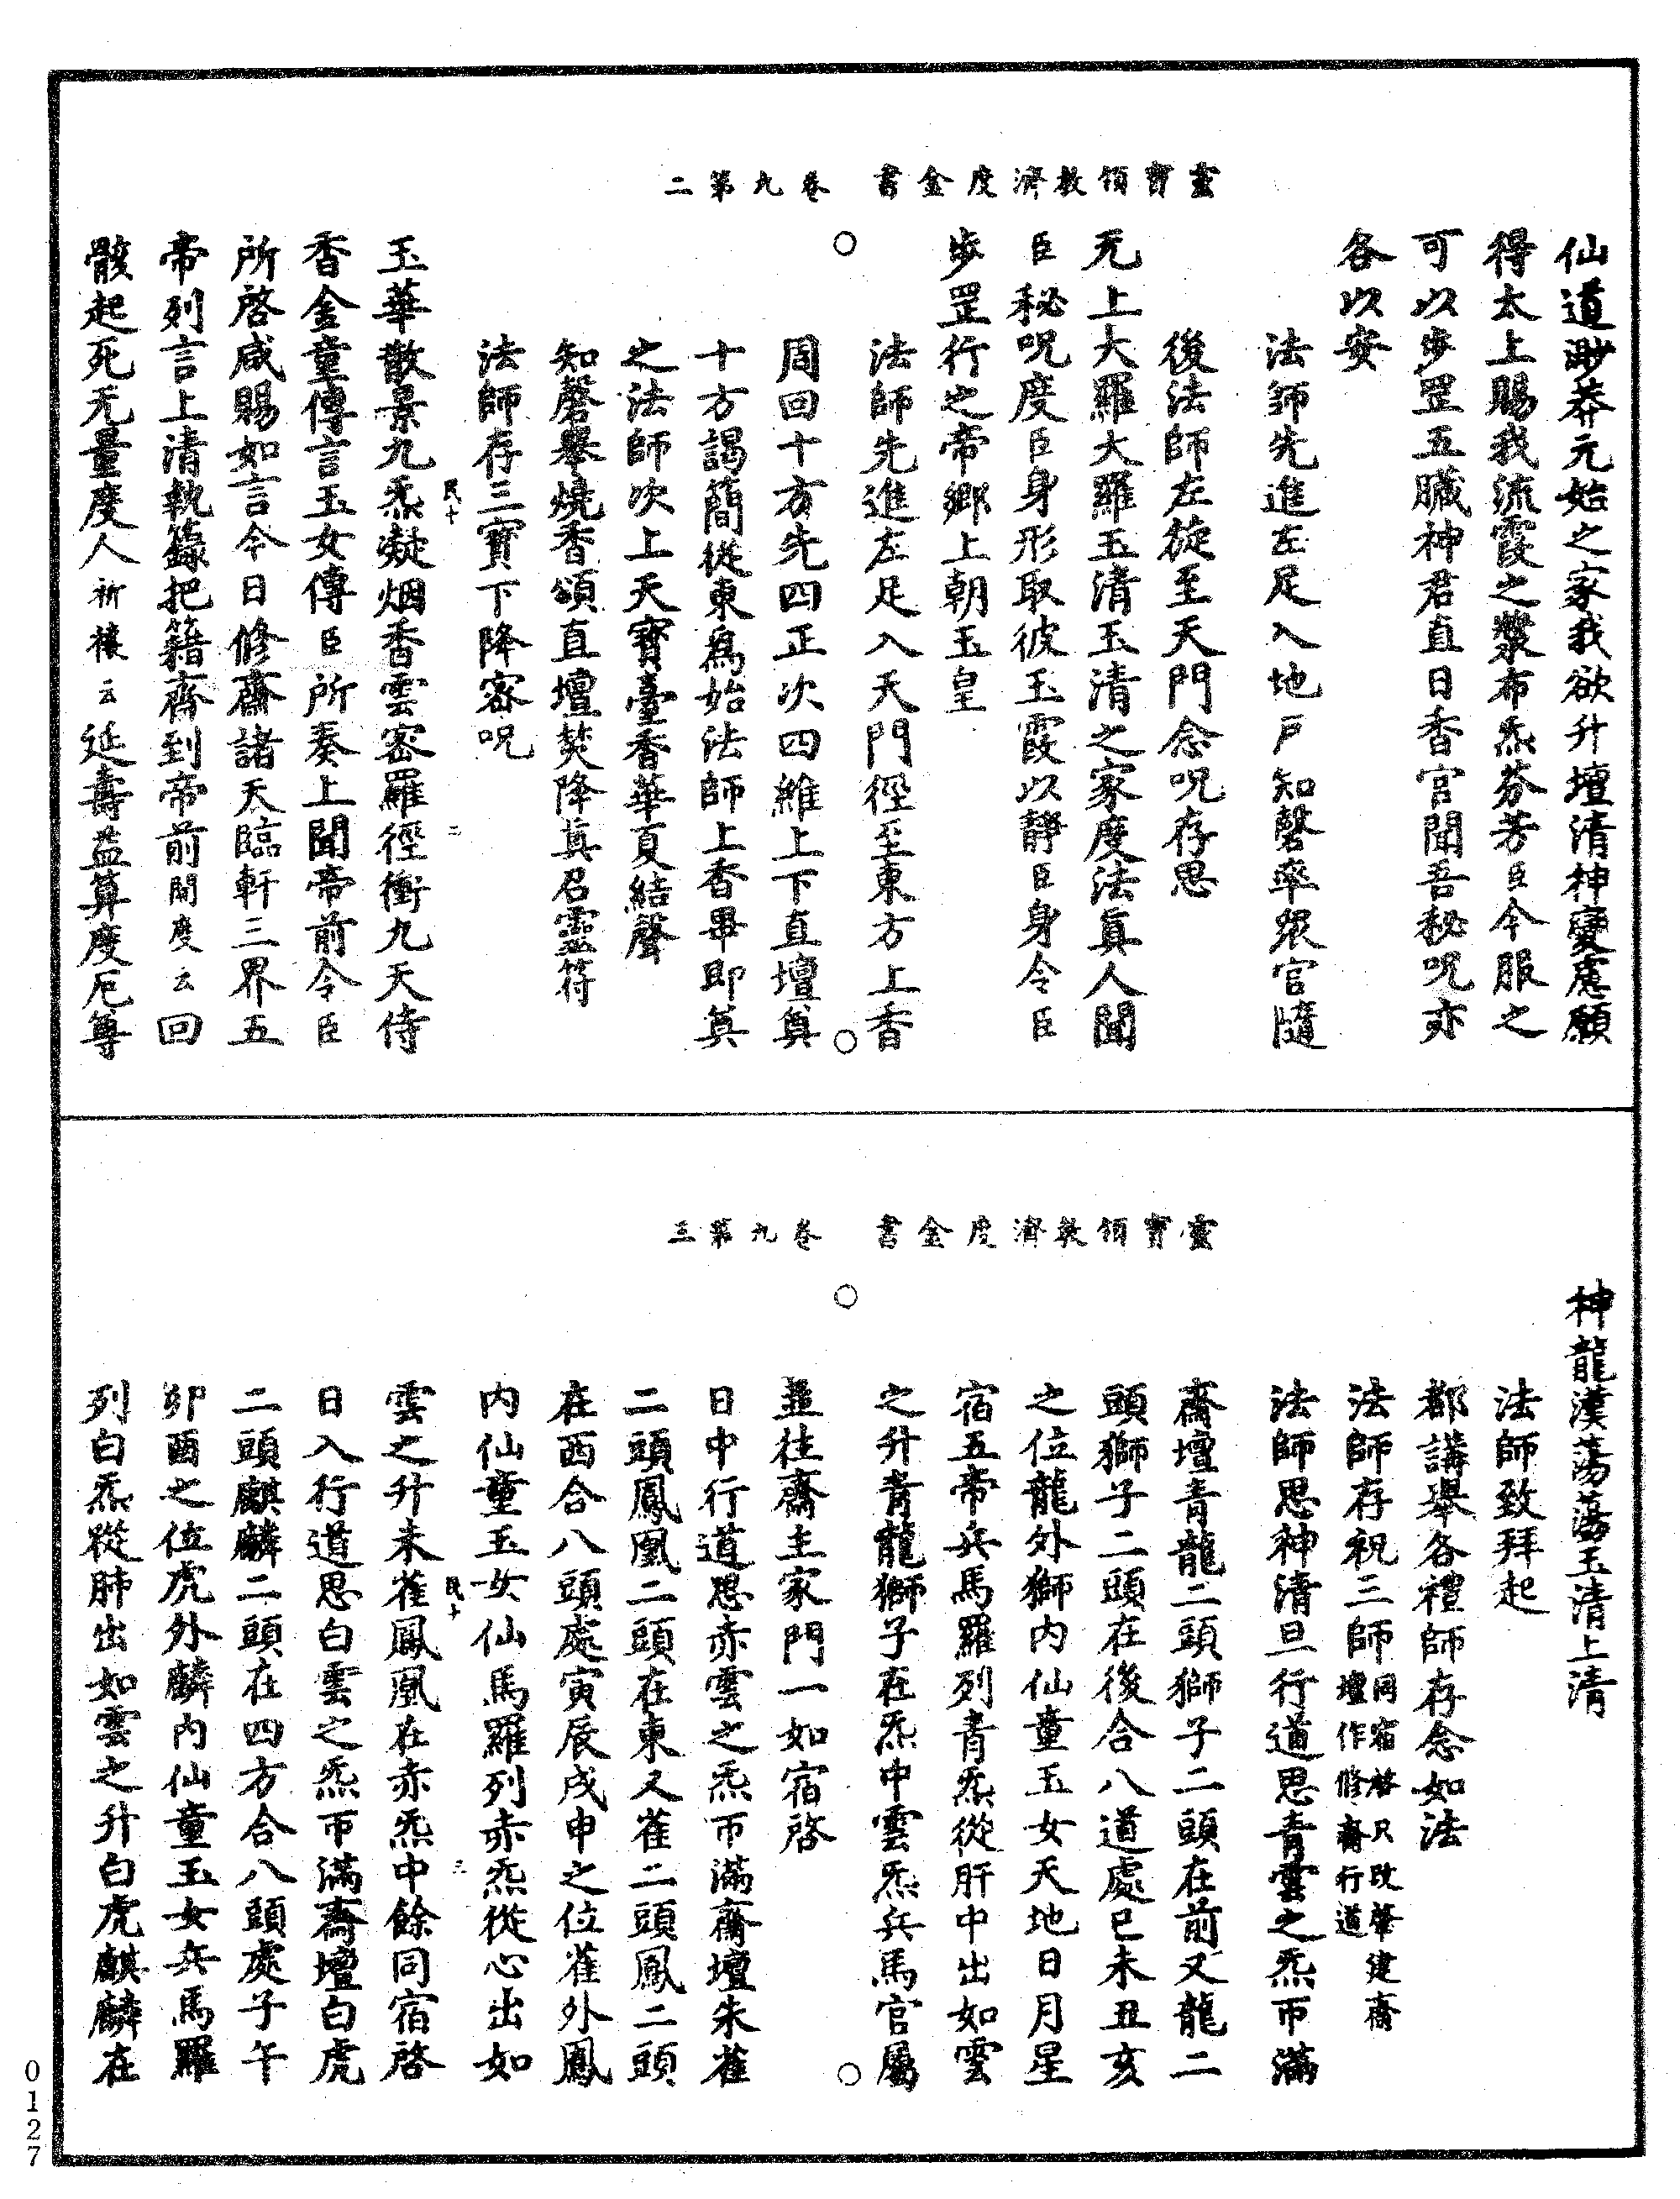 靈寶領教濟度金書　卷九第二
仙道渺莽元始之家我欲升壇清神變慮願
得太上賜我流霞之漿布炁芬芳臣今服之
可以步罡五臟神君直日香官聞吾秘呪亦
各以安
法師先進左足入地戶知磬率眾官隨
後法師左旋至天門念呪存思
无上大羅大羅玉清玉清之家度法真人聞
臣秘呪度臣身形取彼玉霞以靜臣身令臣
步罡行之帝鄉上朝玉皇
法師先進左足入天門徑至東方上香
周回十方先四正次四維上下直壇奠
十方謁簡從東為始法師上香畢即奠
之法師吹上天寶臺香華夏結聲
知磬舉燒香頌直壇焚降真召靈符
法師存三寶下降密呪
民十　二
玉華散景九炁凝烟香雲密羅徑衝九天侍
香金童傳言玉女傳臣所奏上聞帝前令臣
所啓咸賜如言今日修齋諸天臨軒三界五
帝列言上清執籙把籍齋到帝前開度云回
骸起死无量度人祈禳云延壽益算度厄尊
靈寶領教濟度金書　卷九第三
神龍漢蕩蕩玉清上清
法師致拜起
都講舉各禮師存念如法
法師存祝三師同宿啓只改肇建齋
壇作修齋行道
法師思神清旦行道思青雲之炁帀滿
齋壇青龍二頭獅子二頭在前又龍二
頭獅子二頭在後合八道處巳未丑亥
之位龍外獅內仙童玉女天地日月星
宿五帝兵馬羅列青炁從肝中出如雲
之升青龍獅子在炁中雲炁兵馬官屬
並往齋主家門一如宿啓
日中行道思赤雲之炁帀滿齋壇朱雀
二頭鳳凰二頭在東又雀二頭鳳二頭
在西合八頭處寅辰戌申之位雀外鳳
內仙童玉女仙馬羅列赤炁從心出如
民十　三
雲之升朱雀鳳凰在赤炁中餘同宿啓
日入行道思白雲之炁帀滿齋壇白虎
二頭麒麟二頭在四方合八頭處子午
卯酉之位虎外麟內仙童玉女兵馬羅
列白炁從肺出如雲之升白虎麒麟在
0127